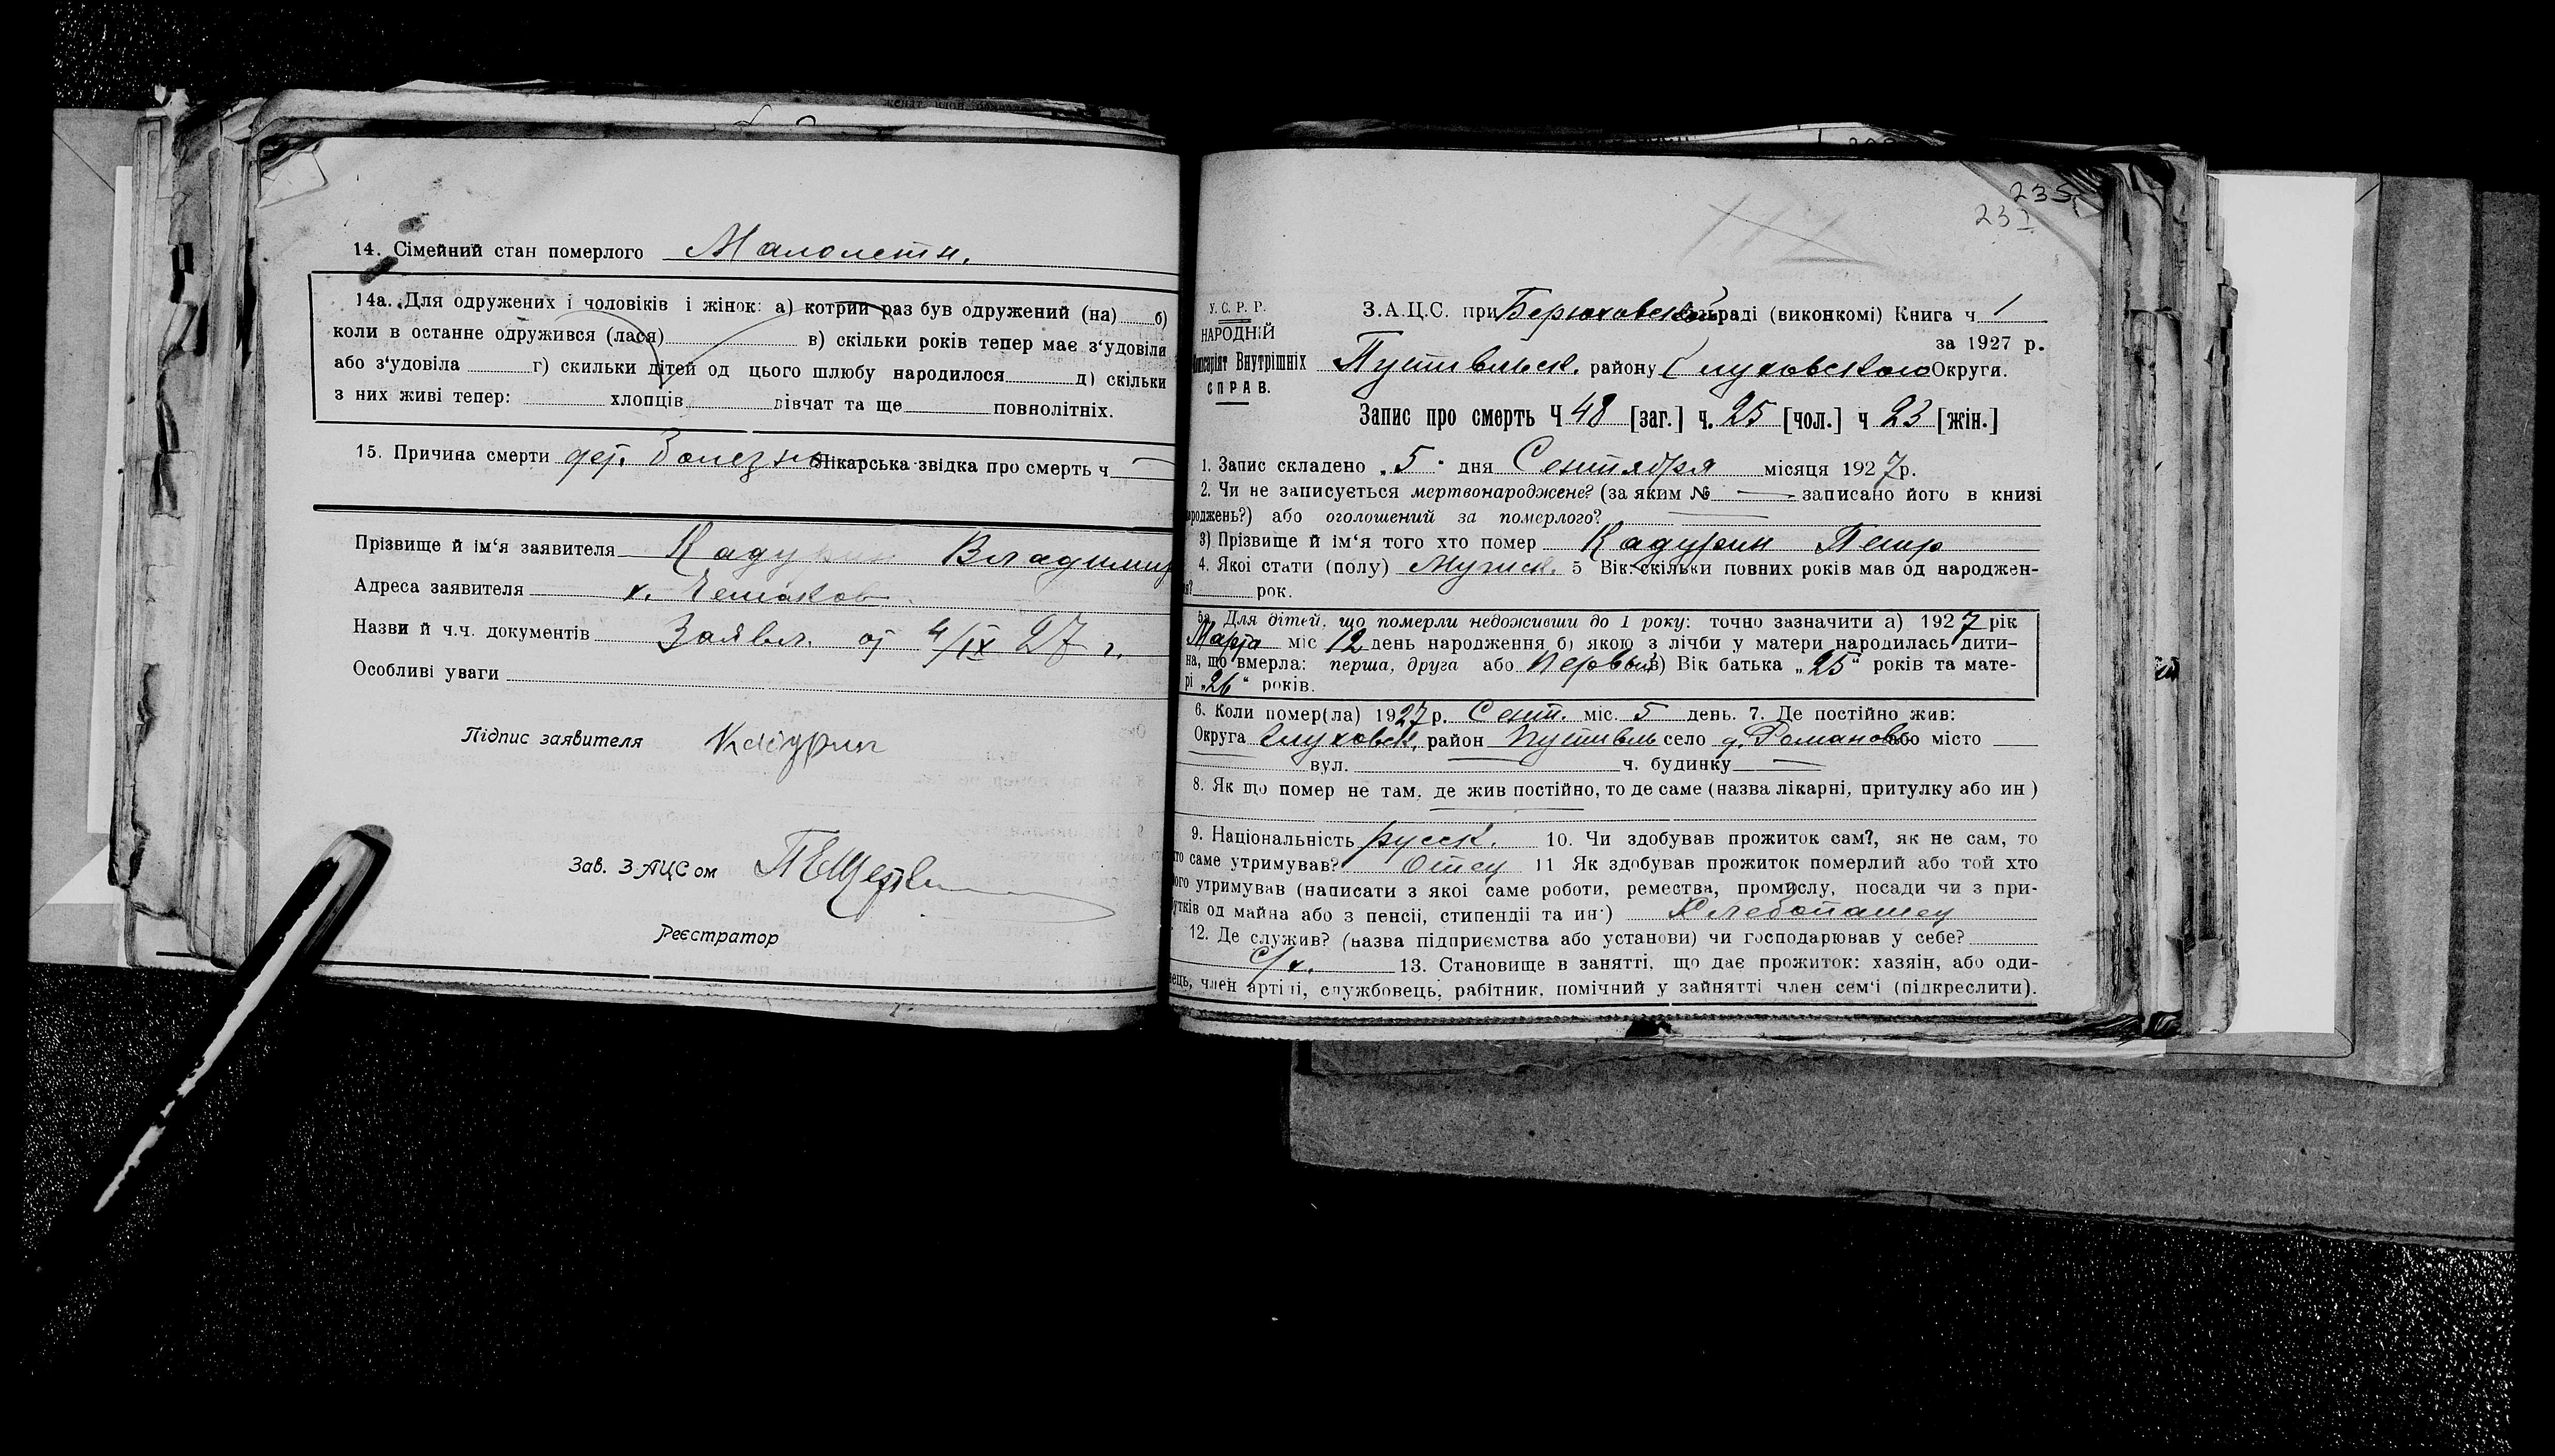 14. Сімейний стан померлого Малолетн.
14а. Для одружених і чоловіків і жінок: а) котрий раз був одружений (на) б)
коли в останне одружився (лася) в) скільки років тепер має з‘удовіли
або з‘удовіла г) скильки дітей од цього шлюбу народилося д) скільки
з них живі тепер: хлопців дівчат та ще повнолітніх.
15. Причина смерти дет. Болезнь Лікарська звідка про смерть ч —
Прізвище й ім‘я заявителя Кадурин Владимир
Адреса заявителя х.
Назви й ч.ч. документів Заявл. от 4/IX 27 г.
Особливі уваги
Підпис заявителя Кадурин
Зав. З-АЦСом
Реєстратор
235
231
У.С.Р.Р.
НАРОДНІЙ
Внутрішніх
СПРАВ.
З.А.Ц.С. при Берюховской раді (виконкомі) Книга ч 1
за 1927 р.
Путивльск. району Глуховского Округи.
Запис про смерть Ч 48 [заг.] ч. 25 [чол.] ч 23 [жін.]
1. Запис складено „5“ дня Сентября місяця 1927 р.
2. Чи не записується мертвонароджене? (за яким № — записано його в книзі
роджень?) або оголошений за померлого? —
3) Прізвище й ім‘я того хто помер Кадурин Петр
4. Якої стати (полу) Мужск. 5 Вік: скільки повних років мав од народжен-
рок.
5а Для дітей, що померли недоживши до 1 року: точно зазначити а) 1927 рік
Марта міс 12 день народження б) якою з лічби у матери народилась дити-
на, що вмерла: перша, друга або первый в) Вік батька „25“ років та мате-
рі „26“ років.
6. Коли помер(ла) 1927 р. Сент. міс. 5 день. 7. Де постійно жив:
Округа Глуховск. район Путивль село д. Романово або місто —
вул. — ч. будинку —
8. Як що помер не там, де жив постійно, то де саме (назва лікарні, притулку або ин )
9. Національність русск. 10. Чи здобував прожиток сам?, як не сам, то
то саме утримував? Отец 11 Як здобував прожиток померлий або той хто
ого утримував (написати з якоі саме роботи, ремества, промислу, посади чи з при-
утків од майна або з пенсіі, стипендіі та ин·) Хлебопашец
12. Де служив? (назва підприємства або установи) чи господарював у себе?
с/х. 13. Становище в занятті, що дає прожиток: хазяін, або оди-
нець, член артілі, службовець, рабітник, помічний у зайнятті член сем‘і (підкреслити).